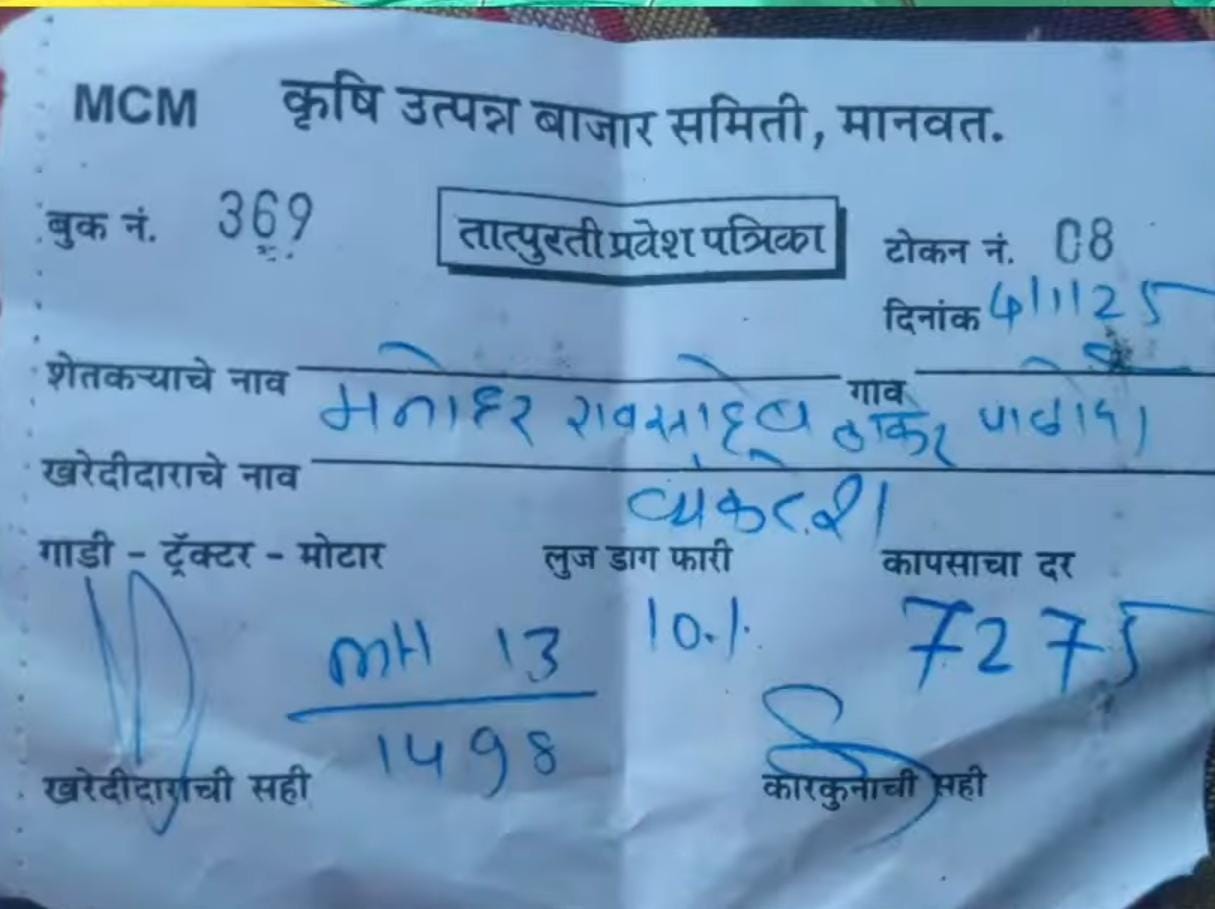 MCM कृषि उत्पन्न बाजार समिती, मानवत.
बुक नं. 369 तात्पुरती प्रवेश पत्रिका टोकन नं. 08
दिनांक 4/1/25
शेतकऱ्याचे नाव मनोहर रावसाहेब ठाकरे गाव
खरेदीदाराचे नाव व्यंकटेश
गाडी - ट्रॅक्टर - मोटार लुज डाग फारी कापसाचा दर
MH 13 10% 7275
1498
खरेदीदाराची सही कारकुनाची सही